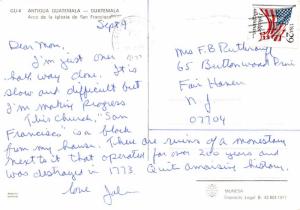 GU-4 ANTIGUA GUATEMALA — GUATEMALA
Arco de la Iglesia de San Francisco
Sept 9
Dear Mom,
I'm just over
half way done. It is
slow and difficult but
I'm making progress
This Church, "San
Francisco" is a block
from my house. There are ruins of a monestary
next to it that operated for over 200 years and
was destroyed in 1773. Quite amazing history.
love John
Mrs F.B Puthrauff
65 Buttonwood Drive
Fair Haven
N J
07704